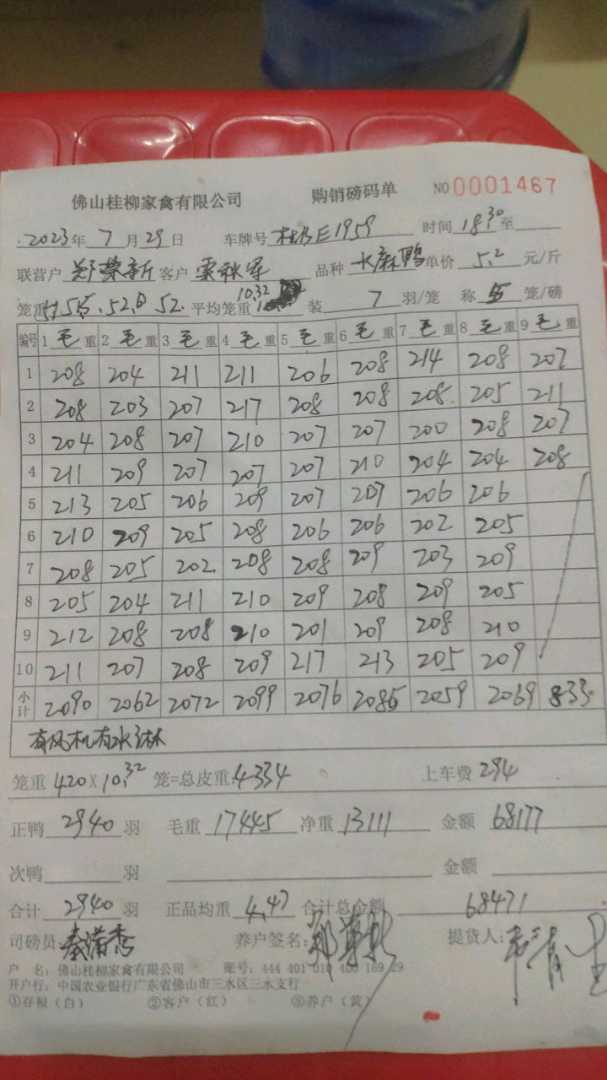 佛山桂柳家禽有限公司 购销磅码单 NO 0001467
2023年 7 月 29 日 车牌号 E1959 时间 18:30 至
联营户 郑荣新 客户 品种 水麻鸭 单价 5.2 元/斤
笼重 52. 52. 平均笼重 10.32 装 7 羽/笼 称 5 笼/磅
编号 1 毛 重 2 毛 重 3 毛 重 4 毛 重 5 毛 重 6 毛 重 7 毛 重 8 毛 重 9 毛 重
1 208 204 211 211 206 208 214 208 207
2 208 203 207 217 208 208 208 205 211
3 204 208 207 210 207 207 200 208 207
4 211 209 207 207 207 210 204 204 208
5 213 205 206 209 207 207 206 206
6 210 209 205 208 206 206 202 205
7 208 205 202 208 208 209 203 209
8 205 204 211 210 209 208 209 205
9 212 208 208 210 201 209 208 210
10 211 207 208 209 217 213 205 209
小计 2090 2062 2072 2099 2076 2085 2059 2069 833
有风机有水淋
笼重 420 X 10.32 笼=总皮重 4334 上车费 294
正鸭 2940 羽 毛重 17445 净重 13111 金额 68177
次鸭 羽 金额
合计 2940 羽 正品均重 4.47 合计总金额 68471
司磅员: 养户签名: 提货人:
户 名: 佛山桂柳家禽有限公司 账号: 444 401 010 400 169 29
开户行: 中国农业银行广东省佛山市三水区三水支行
①存根(白) ②客户(红) ③养户(黄)